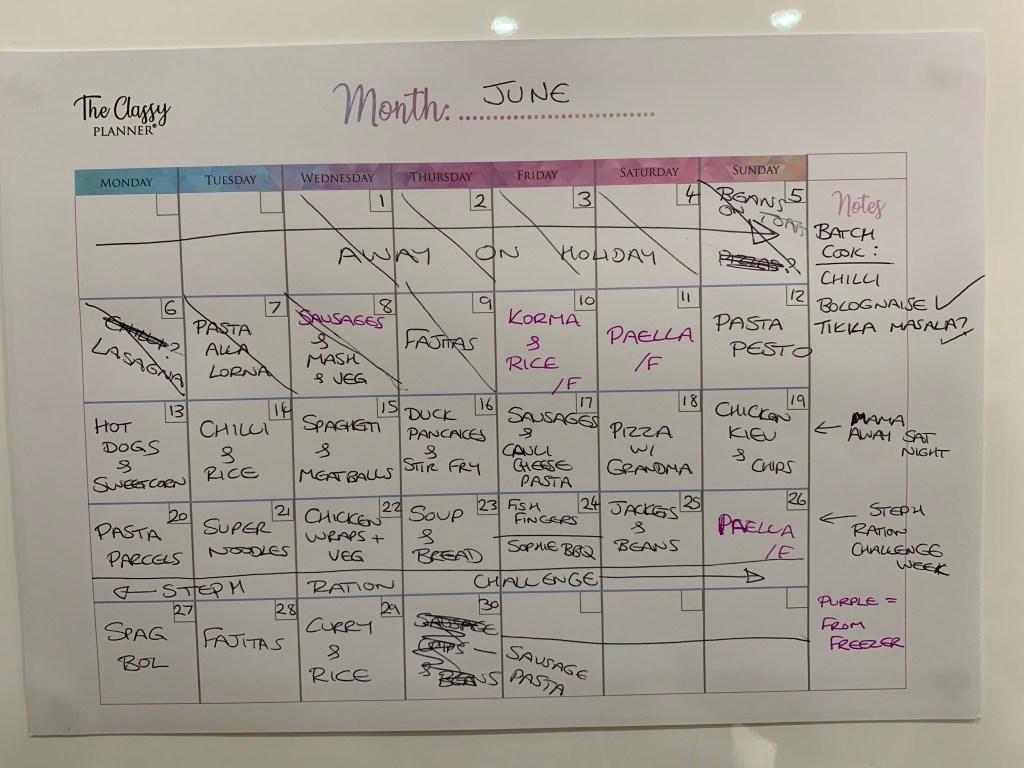 The Classy
PLANNER
Month: JUNE
MONDAY TUESDAY WEDNESDAY THURSDAY FRIDAY SATURDAY SUNDAY
Notes
1
2
3
4
5
BEANS
ON TOAST
AWAY ON HOLIDAY
PIZZAS?
6
LASAGNA
7
PASTA
ALLA
LORNA
8
SAUSAGES
&
MASH
& VEG
9
FAJITAS
10
KORMA
&
RICE
/F
11
PAELLA
/F
12
PASTA
PESTO
13
HOT
DOGS
&
SWEETCORN
14
CHILLI
&
RICE
15
SPAGHETI
&
MEATBALLS
16
DUCK
PANCACES
&
STIR FRY
17
SAUSAGES
&
CAULI
CHEESE
PASTA
18
PIZZA
W/
GRANDMA
19
CHICKEN
KIEV
& CHIPS
20
PASTA
PARCELS
21
SUPER
NOODLES
22
CHICKEN
WRAPS +
VEG
23
SOUP
&
BREAD
24
FISH
FINGERS
SOPHIE BBQ
25
JACKETS
&
BEANS
26
PAELLA
/F
STEPH RATION CHALLENGE
27
SPAG
BOL
28
FAJITAS
29
CURRY
&
RICE
30
SAUSAGE
CHIPS
& BEANS
SAUSAGE
PASTA
BATCH
COOK:
CHILLI
BOLOGNAISE
TIKKA MASALA?
MAMA
AWAY SAT
NIGHT
STEPH
RATION
CHALLENGE
WEEK
PURPLE =
FROM
FREEZER